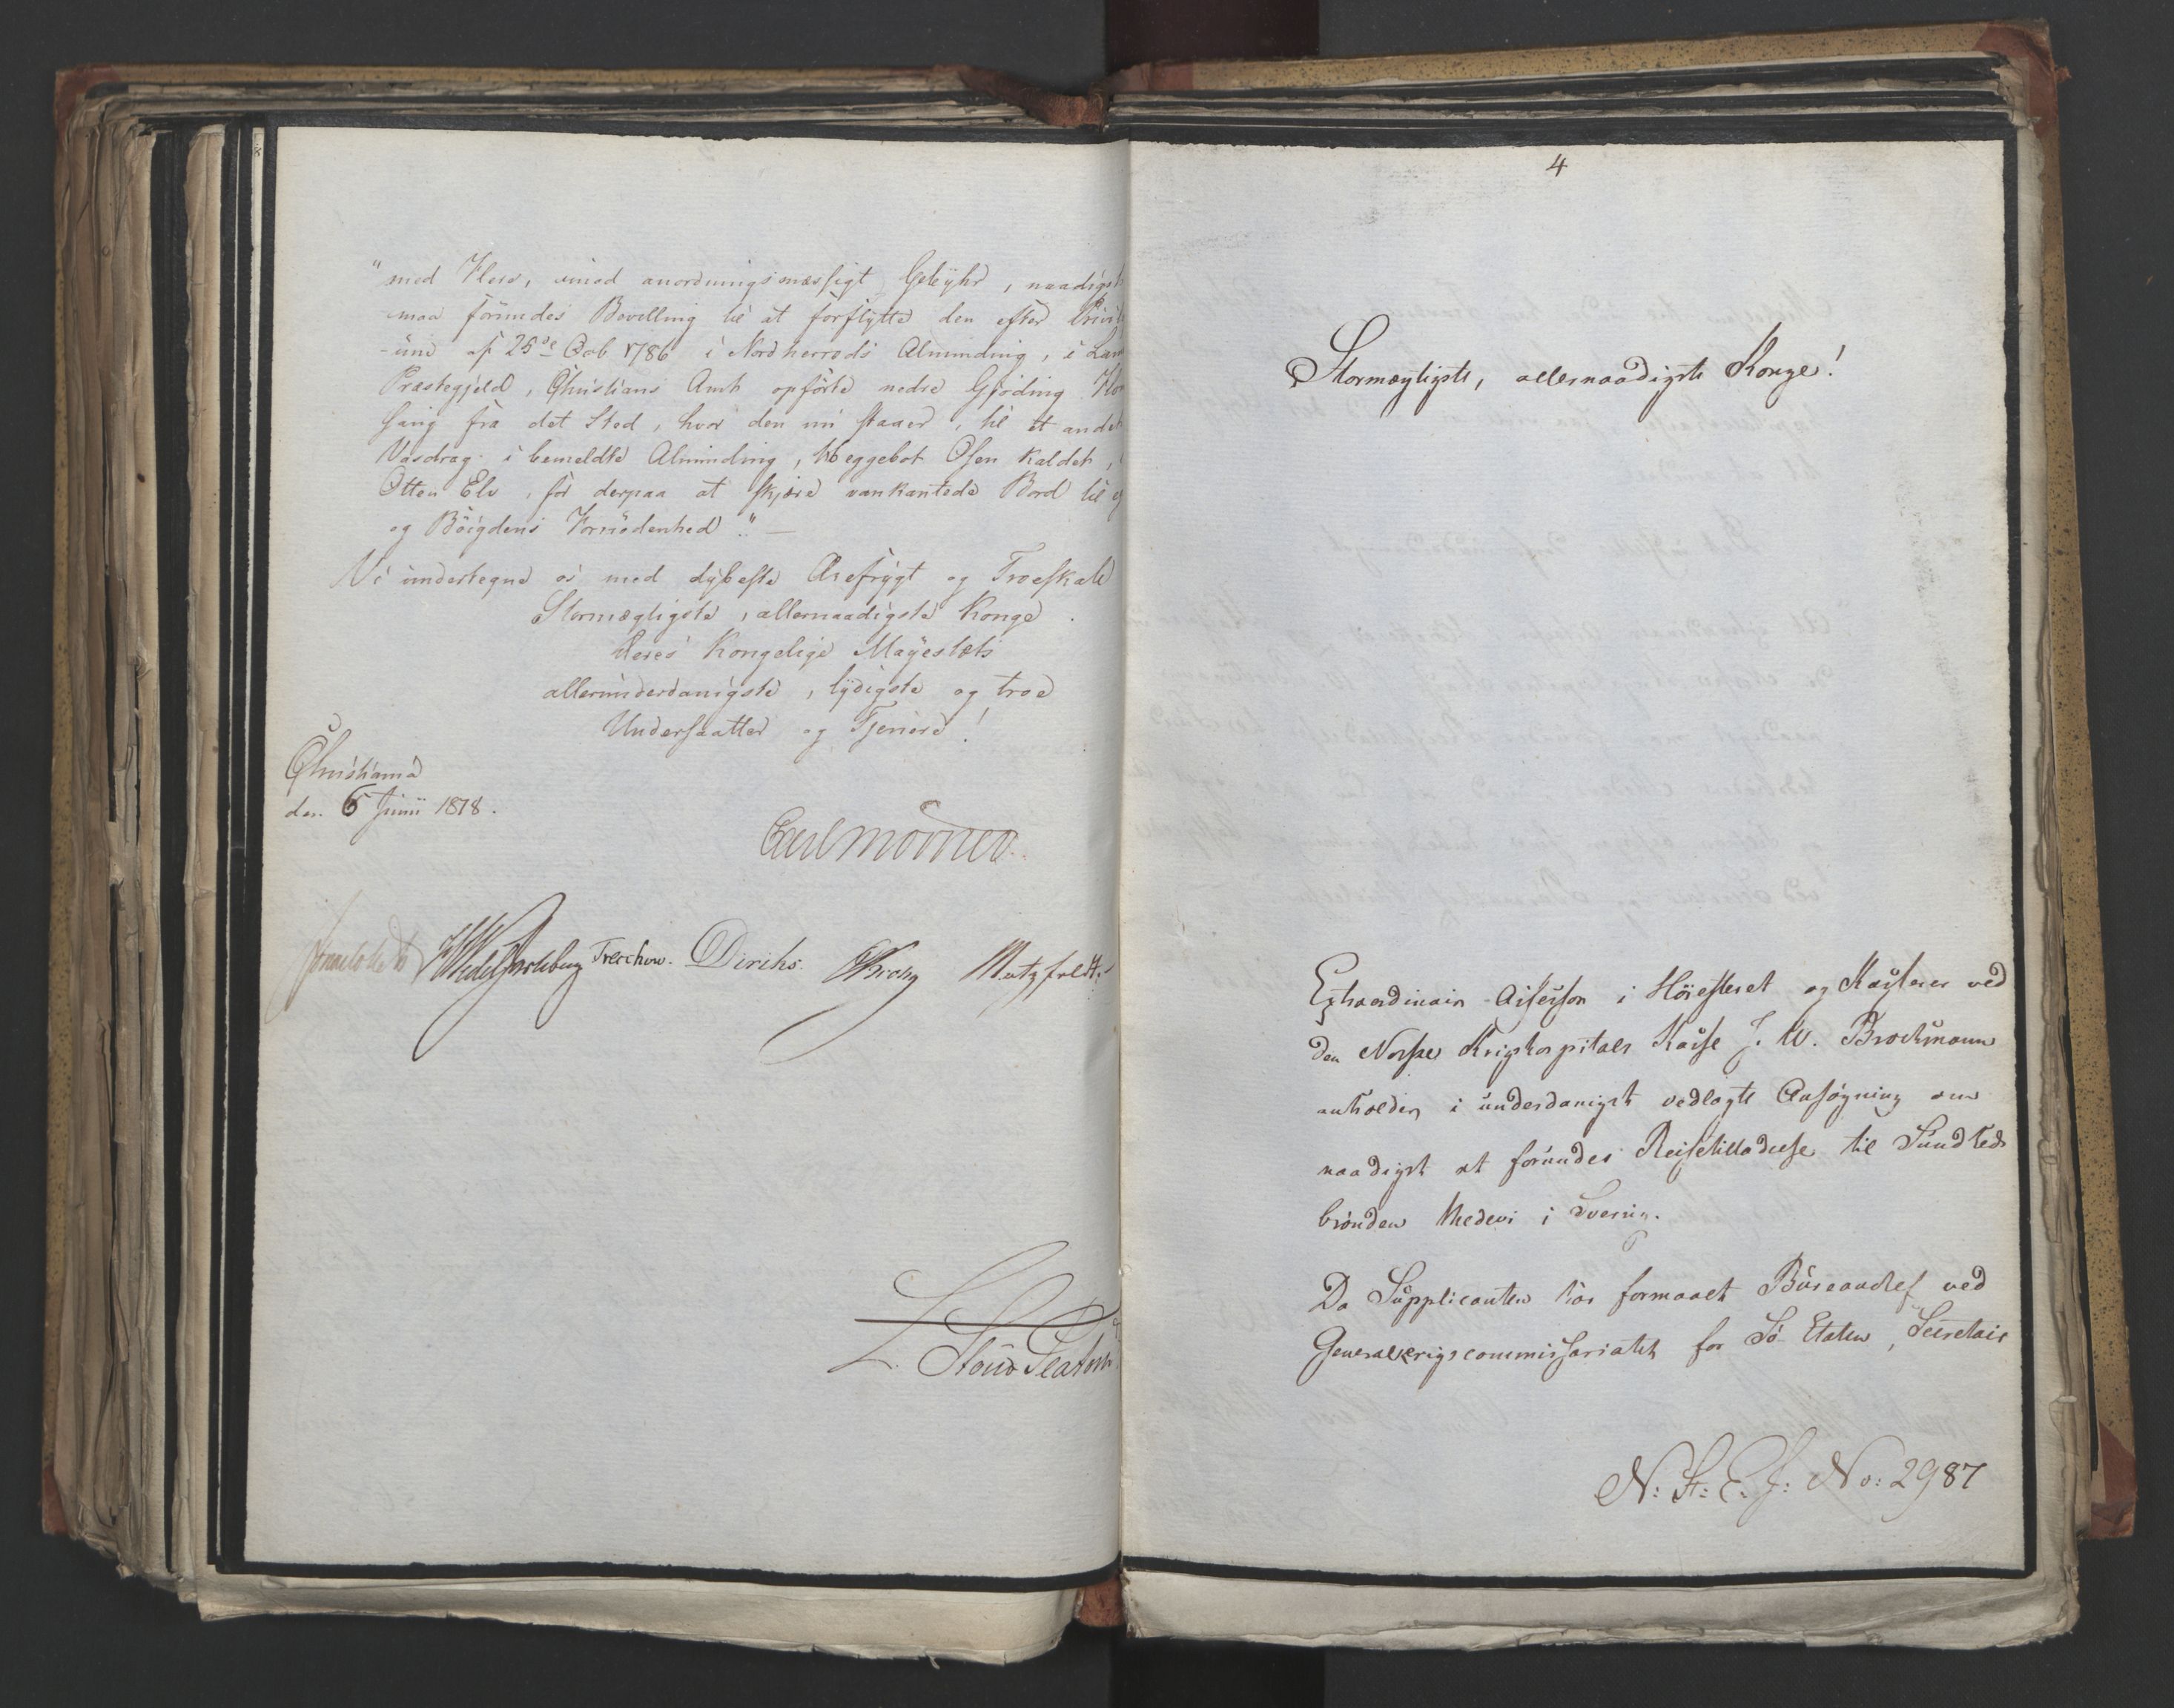 "med Flere, imod anordningsmæssigt Gebyhr, naadigst
maa forundes Bevilling til at forflytte den efter Privil
-um af 25de Oct 1786 i Nordherreds Alminding, i Lam
Præstegjeld, Christians Amt opførte nedre Gjøding
Saug fra det Sted, hvor den nu staaer, til et andet
Vasdrag i bemeldte Alminding, Weggebot Osen kaldet,
Otten Elv, for derpaa at skjære vankantede Bord til
og Böigdens Fornødenhed". —
Vi undertegne os med dybeste Ærefrygt og Troeskab
Stormægtigste, allernaadigste Konge
Deres Kongelige Mayestæts
allerunderdanigste, lydigste og troe
Undersaatter og Tjenere!
Christiania
den 6 Junii 1818.
Carl Mörner
Treschow. Diriks. Krohg Motzfeldt
L. Stoud Platou
4
Stormægtigste, allernaadigste Konge!
Extraordinair Assessor i Höiesteret og Kasserer ved
den Norske Krigshospitals Kasse J. W. Brockmann
anholder i underdanigst vedlagte Ansøgning om
naadigst at forundes Reisetilladelse til Sundheds
brønden Medevi i Sverrig.
Da Supplicanten har formaaet Büreauchef ved
Generalkrigscommissariatet for Sø-Etaten, Secretair
N: St: E. J: No: 2987